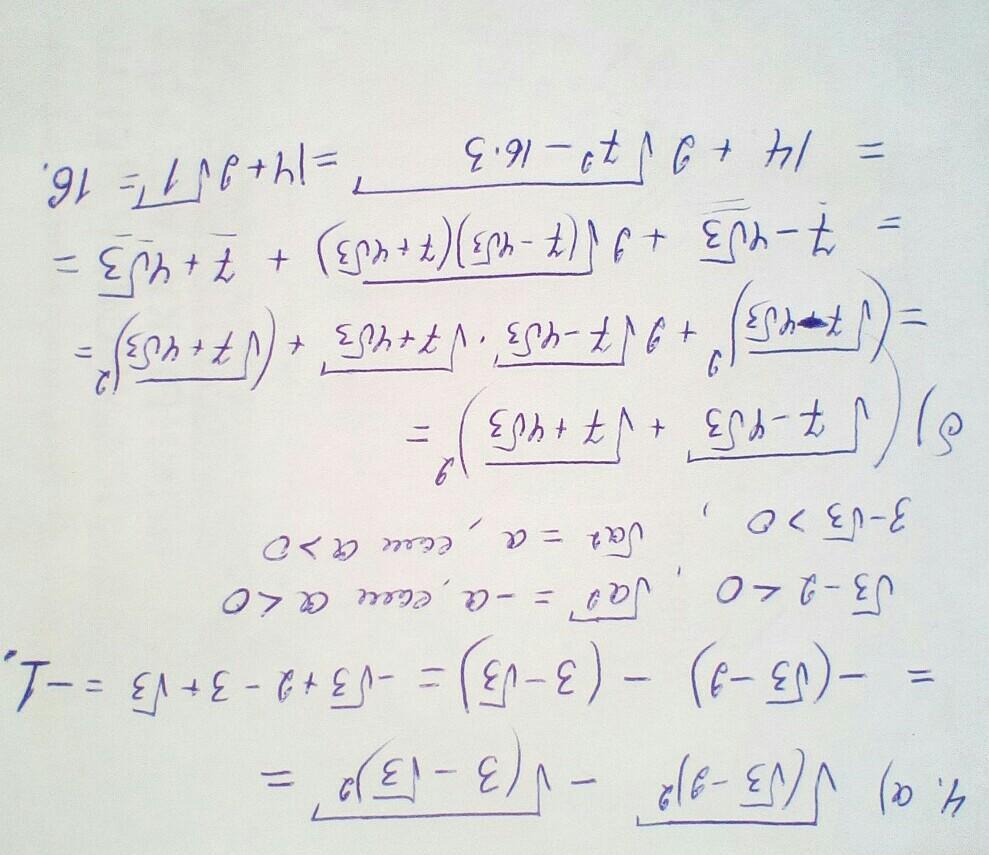 4. а) √(√3 - 2)² - √(3 - √3)² =
= -(√3 - 2) - (3 - √3) = -√3 + 2 - 3 + √3 = -1.
√3 - 2 < 0, √a² = -a, если a < 0
3 - √3 > 0, √a² = a, если a > 0
б) (√7 - 4√3 + √7 + 4√3)² =
= (√7 - 4√3)² + 2√7 - 4√3 · √7 + 4√3 + (√7 + 4√3)² =
= 7 - 4√3 + 2√(7 - 4√3)(7 + 4√3) + 7 + 4√3 =
= 14 + 2√7² - 16·3 = 14 + 2√1 = 16.